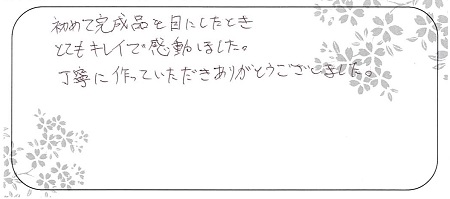 初めて完成品を目にしたとき
とてもキレイで感動しました。
丁寧に作っていただきありがとうございました。